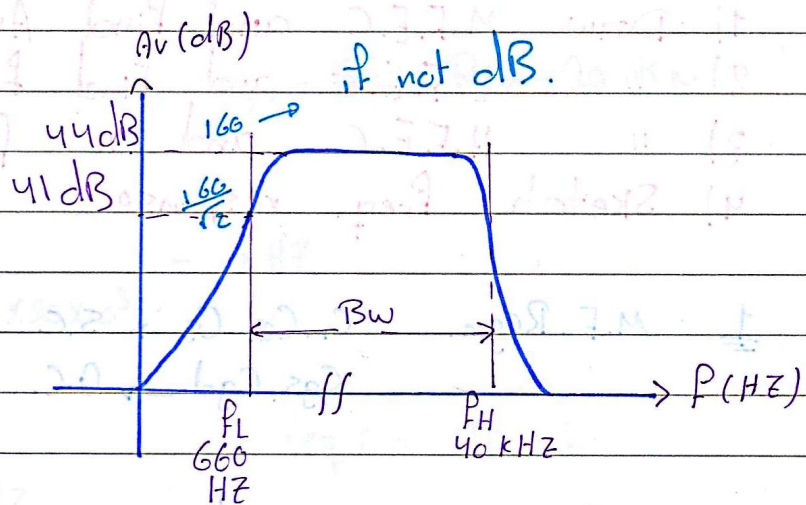 Av (dB)
if not dB.
44dB
160 →
41dB
160/√2
BW
f(HZ)
fL
660
HZ
fH
40 KHZ